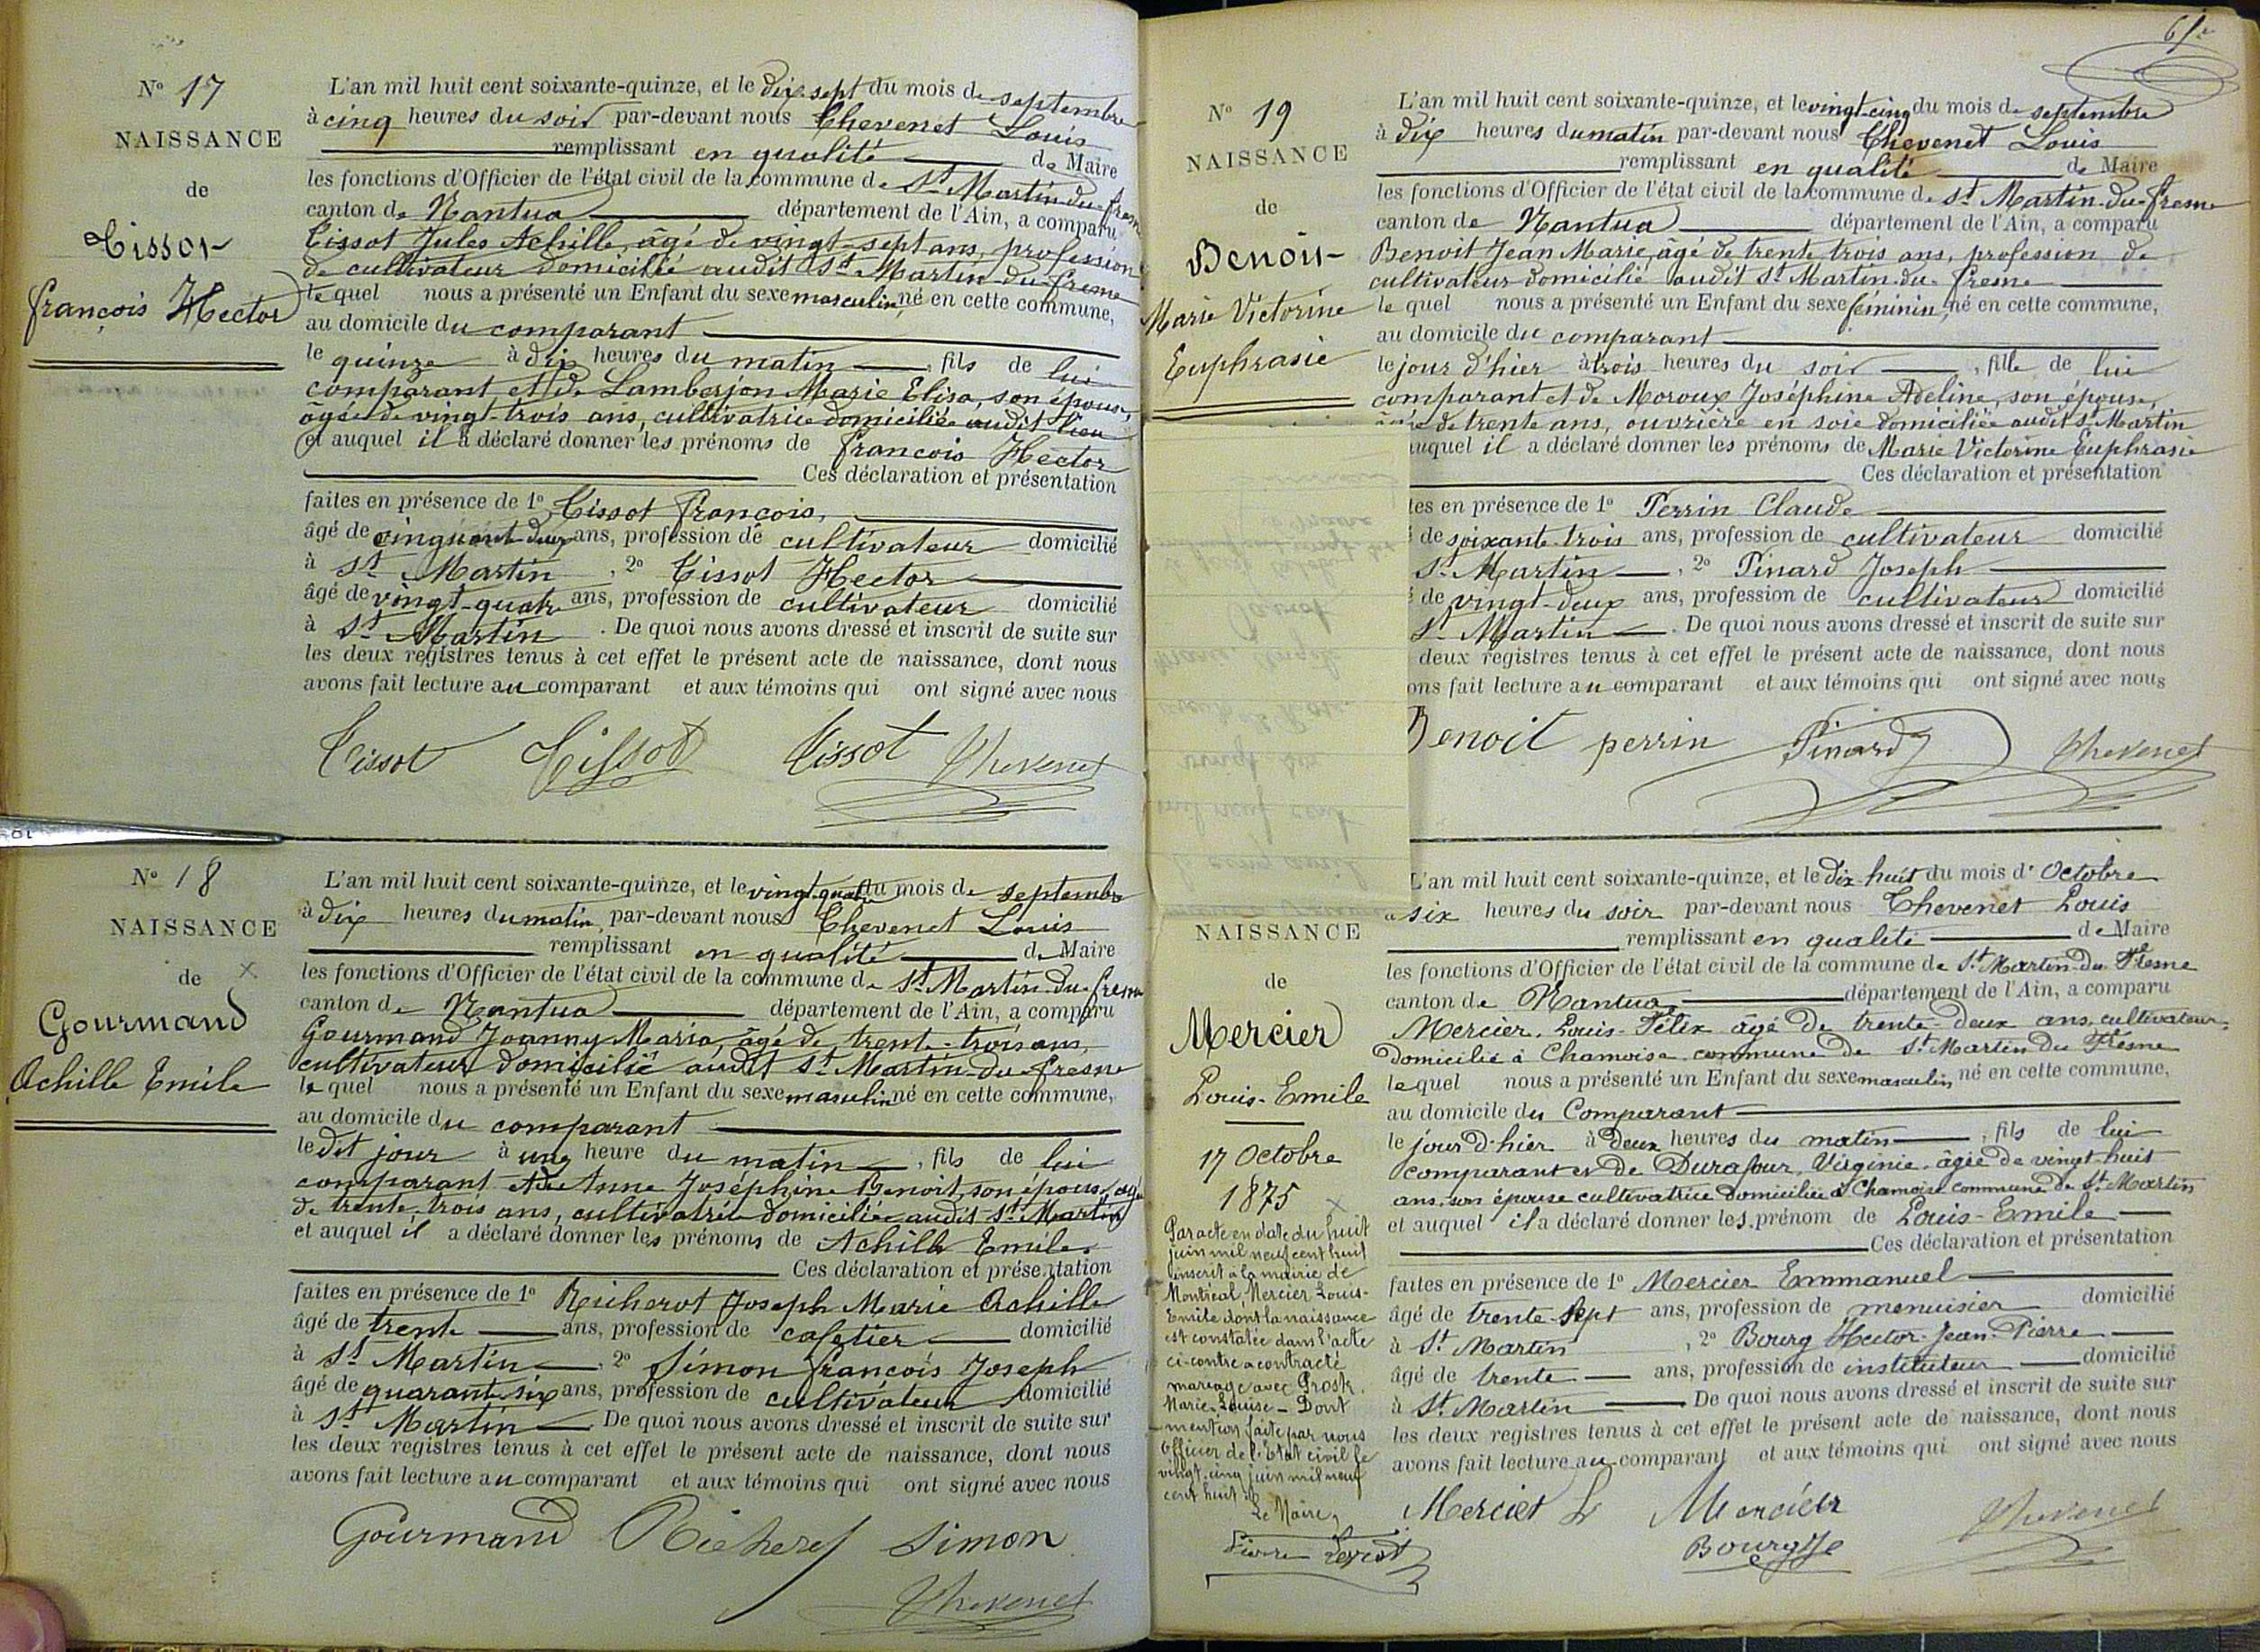 Nº 17
NAISSANCE
de
Tissot
françois Hector
L'an mil huit cent soixante-quinze, et le dix sept du mois de septembre
à cinq heures du soir par-devant nous Chevenet Louis
remplissant en qualité de Maire
les fonctions d'Officier de l'état civil de la commune de St Martin-du-fresne
canton de Nantua département de l'Ain, a comparu
Tissot Jules Achille, âgé de vingt-sept ans, profession
de cultivateur domicilié audit St Martin-du-fresne
le quel nous a présenté un Enfant du sexe masculin, né en cette commune,
au domicile du comparant
le quinze à dix heures du matin, fils de lui
comparant et de Lamberjon Marie Elisa, son épouse,
âgée de vingt-trois ans, cultivatrice domiciliée audit lieu
et auquel il a déclaré donner les prénoms de françois Hector
Ces déclaration et présentation
faites en présence de 1º Tissot françois,
âgé de cinquante deux ans, profession de cultivateur domicilié
à St Martin, 2º Tissot Hector
âgé de vingt-quatre ans, profession de cultivateur domicilié
à St Martin. De quoi nous avons dressé et inscrit de suite sur
les deux registres tenus à cet effet le présent acte de naissance, dont nous
avons fait lecture au comparant et aux témoins qui ont signé avec nous
Tissot Tissot Tissot Chevenet
Nº 18
NAISSANCE
de
Gourmand
Achille Emile
L'an mil huit cent soixante-quinze, et le vingt-quatre du mois de septembre
à dix heures du matin, par-devant nous Chevenet Louis
remplissant en qualité de Maire
les fonctions d'Officier de l'état civil de la commune de St Martin-du-fresne
canton de Nantua département de l'Ain, a comparu
Gourmand Joanny Maria, âgé de trente-trois ans,
cultivateur domicilié audit St Martin-du-fresne
le quel nous a présenté un Enfant du sexe masculin né en cette commune,
au domicile du comparant
le dit jour à une heure du matin, fils de lui
comparant et de Anne Joséphine Benoit, son épouse, âgée
de trente-trois ans, cultivatrice domiciliée audit St Martin
et auquel il a déclaré donner les prénoms de Achille Emile.
Ces déclaration et présentation
faites en présence de 1º Richerot Joseph Marie Achille
âgé de trente ans, profession de cafetier domicilié
à St Martin 2º Simon françois Joseph
âgé de quarante six ans, profession de cultivateur domicilié
à St Martin De quoi nous avons dressé et inscrit de suite sur
les deux registres tenus à cet effet le présent acte de naissance, dont nous
avons fait lecture au comparant et aux témoins qui ont signé avec nous
Gourmand Richerot Simon
Chevenet
Nº 19
NAISSANCE
de
Benoit
Marie Victorine
Euphrasie
L'an mil huit cent soixante-quinze, et le vingt-cinq du mois de septembre
à dix heures du matin par-devant nous Chevenet Louis
remplissant en qualité de Maire
les fonctions d'Officier de l'état civil de la commune de St Martin-du-fresne
canton de Nantua département de l'Ain, a comparu
Benoit Jean Marie, âgé de trente trois ans, profession de
cultivateur domicilié audit St Martin-du-fresne
le quel nous a présenté un Enfant du sexe féminin, né en cette commune,
au domicile du comparant
le jour d'hier à trois heures du soir, fille de lui
comparant et de Moroux Joséphine Adeline, son épouse,
de trente ans, ouvrière en soie domiciliée audit St Martin
auquel il a déclaré donner les prénoms de Marie Victorine Euphrasie
Ces déclaration et présentation
tes en présence de 1º Perrin Claude
de soixante-trois ans, profession de cultivateur domicilié
St Martin, 2º Pinard Joseph
de vingt-deux ans, profession de cultivateur domicilié
St Martin. De quoi nous avons dressé et inscrit de suite sur
deux registres tenus à cet effet le présent acte de naissance, dont nous
ons fait lecture au comparant et aux témoins qui ont signé avec nous
Benoit perrin Pinard Chevenet
NAISSANCE
de
Mercier
Louis-Emile
17 Octobre
1875
Par acte en date du huit
juin mil neuf cent huit
inscrit à la mairie de
Montréal, Mercier Louis-
Emile dont la naissance
est constatée dans l'acte
ci-contre a contracté
mariage avec Prost
Marie-Louise - Dont
mention faite par nous
Officier de l'Etat civil le
vingt-cinq juin mil neuf
cent huit.
Le Maire,
L'an mil huit cent soixante-quinze, et le dix-huit du mois d'Octobre
à six heures du soir par-devant nous Chevenet Louis
remplissant en qualité de Maire
les fonctions d'Officier de l'état civil de la commune de St Martin-du-Fresne
canton de Nantua, département de l'Ain, a comparu
Mercier, Louis-Félix âgé de trente-deux ans, cultivateur,
domicilié à Chamoise commune de St Martin du Fresne
le quel nous a présenté un Enfant du sexe masculin né en cette commune,
au domicile du Comparant
le jour d'hier à deux heures du matin, fils de lui
comparant et de Durafour, Virginie, âgée de vingt-huit
ans, son épouse cultivatrice domiciliée à Chamoise commune de St Martin
et auquel il a déclaré donner les prénom de Louis-Emile
Ces déclaration et présentation
faites en présence de 1º Mercier Emmanuel
âgé de trente-sept ans, profession de menuisier domicilié
à St Martin, 2º Bourg Hector-Jean-Pierre
âgé de trente ans, profession de instituteur domicilié
à St Martin De quoi nous avons dressé et inscrit de suite sur
les deux registres tenus à cet effet le présent acte de naissance, dont nous
avons fait lecture au comparant et aux témoins qui ont signé avec nous
Mercier L Mercier Chevenet